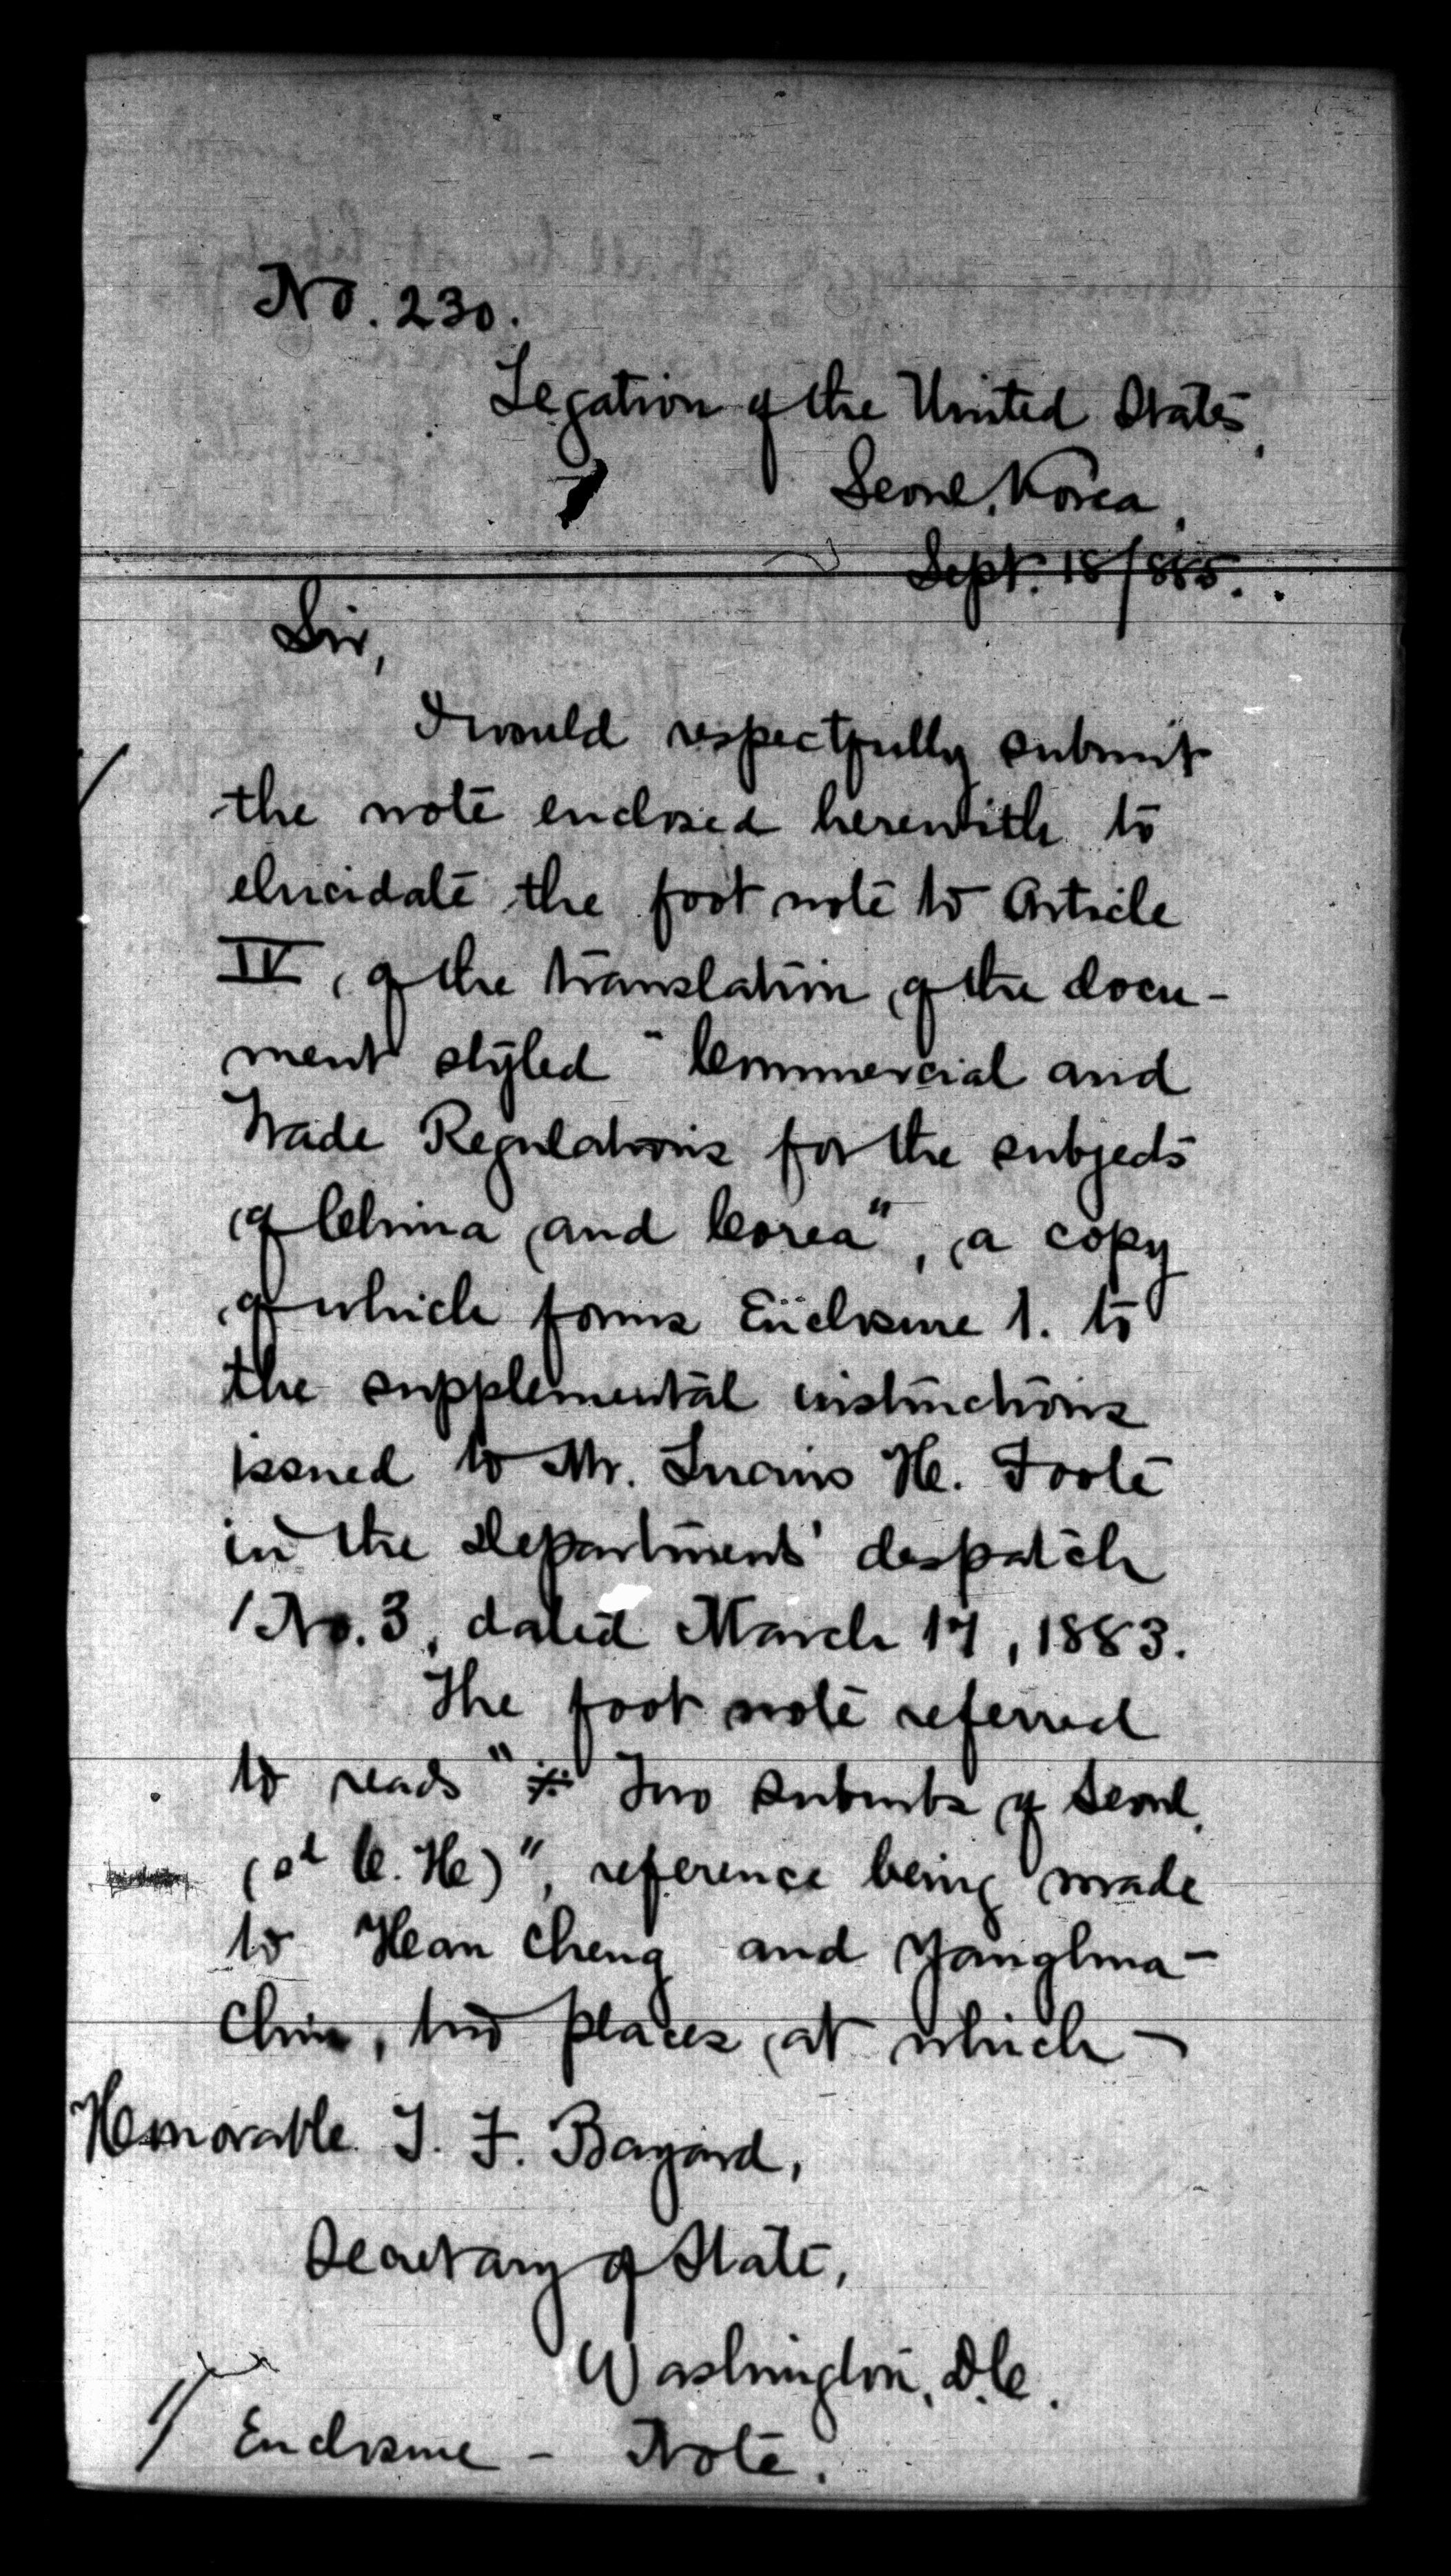 No. 230.
Legation of the United States,
Seoul, Korea,
Sept. 18/885.
Sir,
I would respectfully submit
the note enclosed herewith to
elucidate the foot note to Article
IV, of the translation of the docu-
ment styled "Commercial and
Trade Regulations for the subjects
of China and Corea", a copy
of which forms Enclosure 1. to
the supplemental instructions
issued to Mr. Lucius H. Foote
in the Department's despatch
No. 3, dated March 17, 1883.
The foot note referred
to reads "※ Two suburbs of Seoul,
C. H.)", reference being made
to Han Cheng and Yanghua-
Chin, two places at which
Honorable T. F. Bayard,
Secretary of State,
Washington, D.C.
1/ Enclosure - Note.